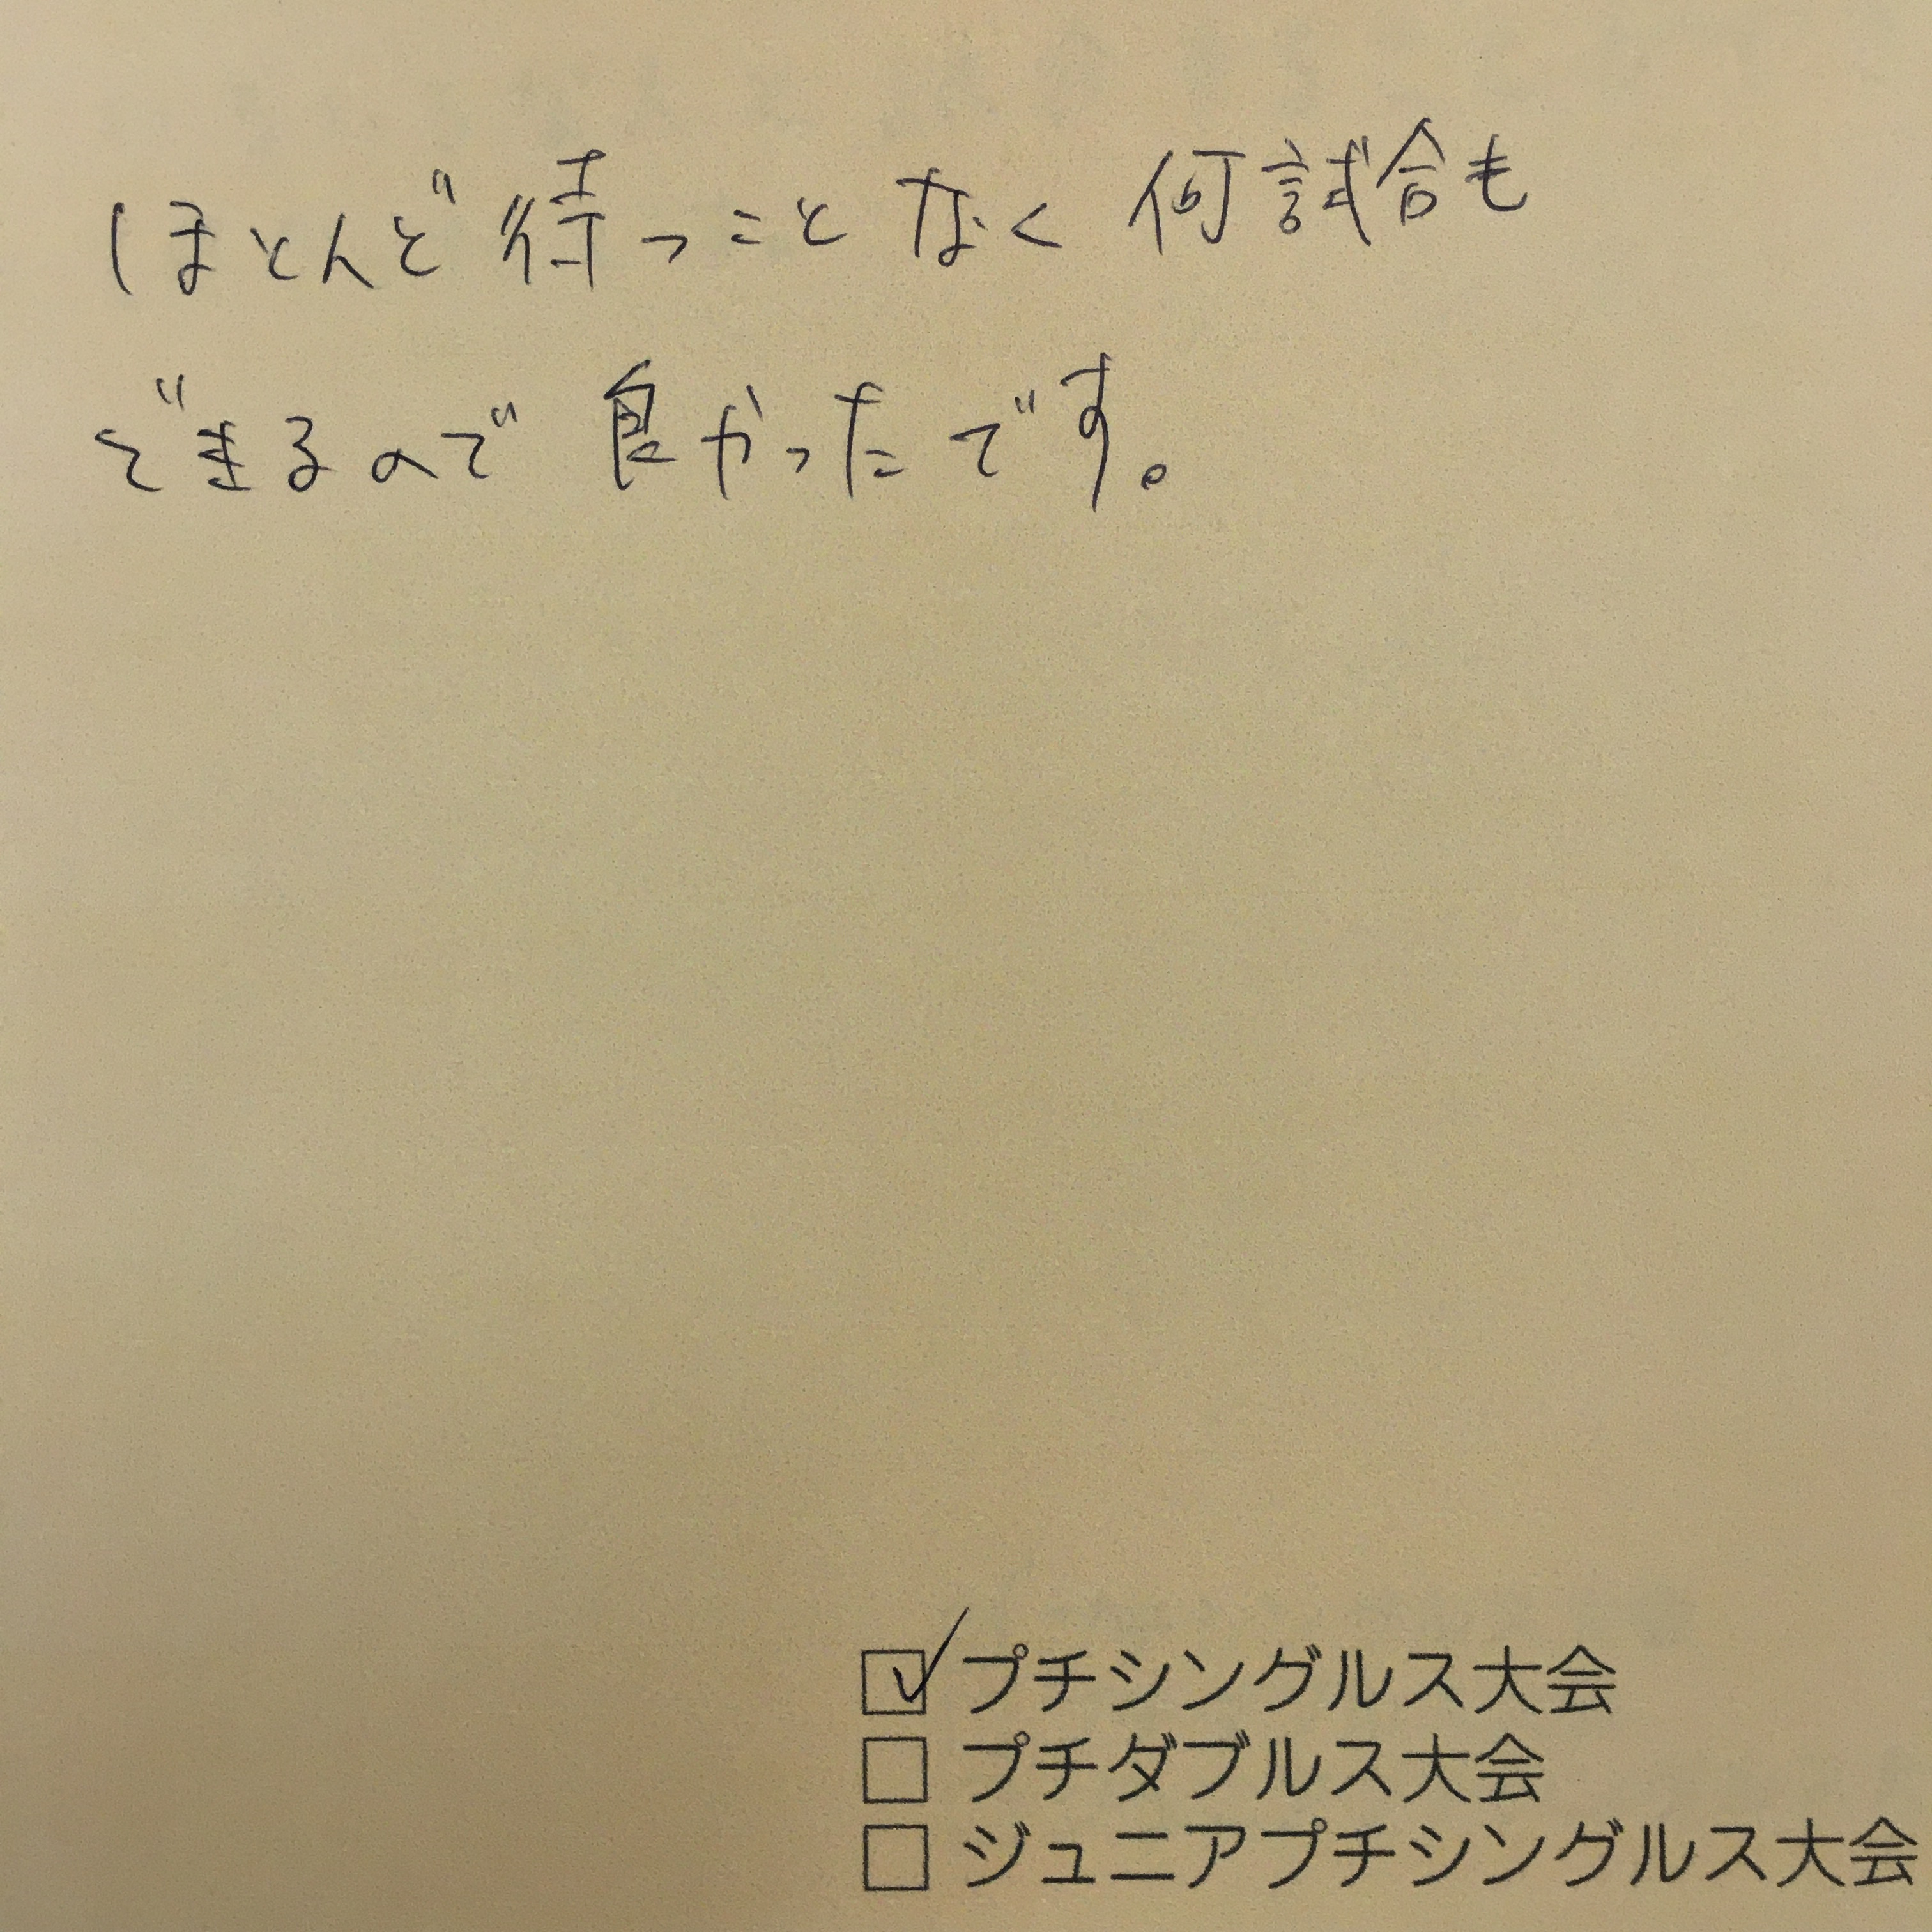 ほとんど待つことなく何試合も
できるので良かったです。
☑プチシングルス大会
☐プチダブルス大会
☐ジュニアプチシングルス大会